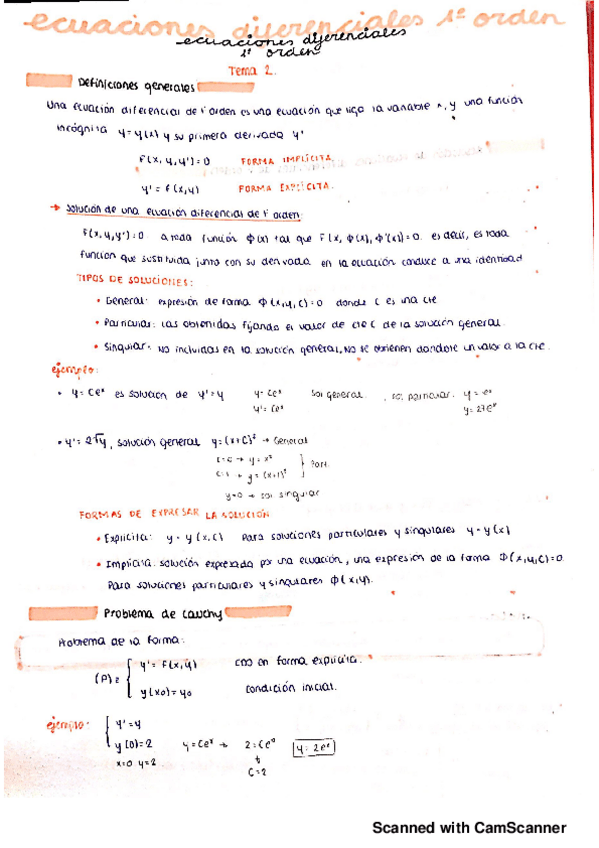 ecuaciones diferenciales 1º orden
ecuaciones diferenciales
1º orden
Tema 2.
Definiciones generales
Una ecuación diferencial de 1º orden es una ecuación que liga la variable x, y una función
incógnita y=y(x) y su primera derivada y'
F(x,y,y')=0 FORMA IMPLÍCITA.
y'=f(x,y) FORMA EXPLÍCITA.
→ Solución de una ecuación diferencial de 1º orden:
F(x,y,y')=0 a toda función Φ(x) tal que F(x, Φ(x), Φ'(x))=0. es decir, es toda
función que sustituida junto con su derivada en la ecuación conduce a una identidad
TIPOS DE SOLUCIONES:
• General: expresión de forma Φ(x,y,C)=0 donde C es una cte
• Particular: Las obtenidas fijando el valor de cte C de la solución general.
• Singular: No incluidas en la solución general, No se obtienen dandole un valor a la cte.
ejemplo:
• y=Ceˣ es solución de y'=y y=Ceˣ Sol general , sol particular. y=eˣ
y'=Ceˣ y=27eˣ
• y'=2√y, solución general y=(x+C)² → General
→ y=x²
→ y=(x+1)² } Part.
y=0 → sol singular
FORMAS DE EXPRESAR LA SOLUCIÓN
• Explícita: y=y(x,C) Para soluciones particulares y singulares y=y(x)
• Implícita: solución expresada por una ecuación, una expresión de la forma Φ(x,y,C)=0.
Para soluciones particulares y singulares Φ(x,y).
Problema de Cauchy
Problema de la forma:
(P)≡ { y'=f(x,y) en forma explícita.
y(x0)=y0 condición inicial.
ejemplo: { y'=y
y(0)=2 y=Ceˣ → 2=Ce⁰ y=2eˣ
x=0 y=2 ↓
C=2
Scanned with CamScanner